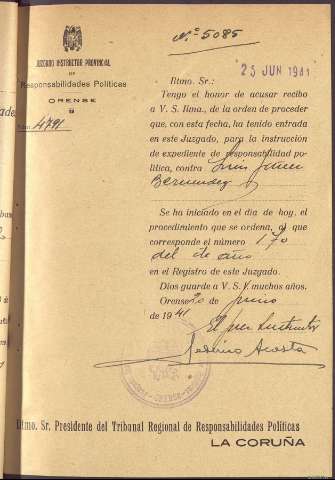 Nº 5085
JUZGADO INSTRUCTOR PROVINCIAL
DE
Responsabilidades Políticas
ORENSE
Núm. 4791
25 JUN 1941
Iltmo. Sr.:
Tengo el honor de acusar recibo
a V. S. Ilma., de la orden de proceder
que, con esta fecha, ha tenido entrada
en este Juzgado, para la instrucción
de expediente de responsabilidad po-
lítica, contra Luis
Bermudez
Se ha iniciado en el día de hoy, el
procedimiento que se ordena, al que
corresponde el número 170
del de año
en el Registro de este Juzgado.
Dios guarde a V. S. I. muchos años.
Orense 20 de junio
de 1941
El juez Instructor
Acosta
Iltmo. Sr. Presidente del Tribunal Regional de Responsabilidades Políticas
LA CORUÑA